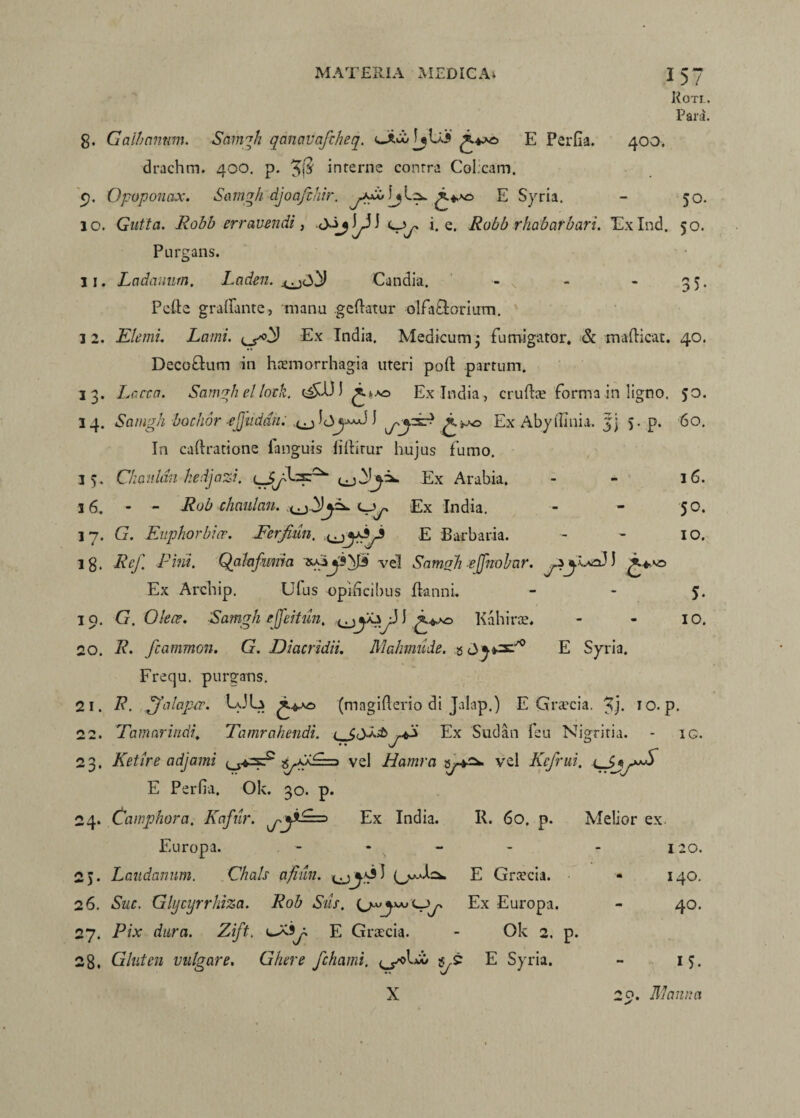 MATERIA MEDICA. 157
Roti.
Pará.
8. Galbanum. Samgh qanavafcheq. صمغ قناوشق E Perfia. 400.
drachm. 400. p. ʒß interne contra Colicam.
9. Opoponax. Samgh djoafchir. صمغ جاوشير E Syria. - 50.
10. Gutta. Robb erravendi, رب الراوند i. e. Robb rhabarbari. Ex Ind. 50.
Purgans.
11. Ladanum. Laden. لادن Candia. - - - 35.
Pefte graffante, manu geftatur olfactorium.
12. Elemi. Lami. لامي Ex India. Medicum; fumigator. & mafticat. 40.
Decoctum in hæmorrhagia uteri poft partum.
13. Lacca. Samgh el lock. صمغ اللك Ex India, cruftæ forma in ligno. 50.
14. Samgh bochór effudán. صمغ بخور السودان Ex Abyffinia. ʒj 5. p. 60.
In caftratione fanguis fiftitur hujus fumo.
15. Chaulán hedjazi. خولان حجازي Ex Arabia. - - 16.
16. - - Rob chaulan. رب خولان Ex India. - - 50.
17. G. Euphorbiæ. Ferfiún. فرفيون E Barbaria. - - 10.
18. Ref. Pini. Qalafunia قلافونية vel Samgh effnobar. صمغ الصنوبر
Ex Archip. Ufus opificibus ftanni. - - 5.
19. G. Oleæ. Samgh effeitún. صمغ الزيتون Kahiræ. - - 10.
20. R. fcammon. G. Diacridii. Mahmúde. محمودة E Syria.
Frequ. purgans.
21. R. Jalapæ. صمغ يالبا (magifterio di Jalap.) E Græcia. ʒj. 10. p.
22. Tamarindi. Tamrahendi. تمر هندي Ex Sudán feu Nigritia. - 10.
23. Ketire adjami كتيرة عجمي vel Hamra حمرة vel Kefrui. كسروي
E Perfia. Ok. 30. p.
24. Camphora. Kafúr. كافور Ex India. R. 60. p. Melior ex
Europa. - - - - - 120.
25. Laudanum. Chals afiún. خلص افيون E Græcia. - 140.
26. Suc. Glycyrrhiza. Rob Sús. رب سوس Ex Europa. - 40.
27. Pix dura. Zift. زفت E Græcia. - Ok 2. p.
28. Gluten vulgare. Ghere fchami. غرة شامي E Syria. - 15.
X 29. Manna